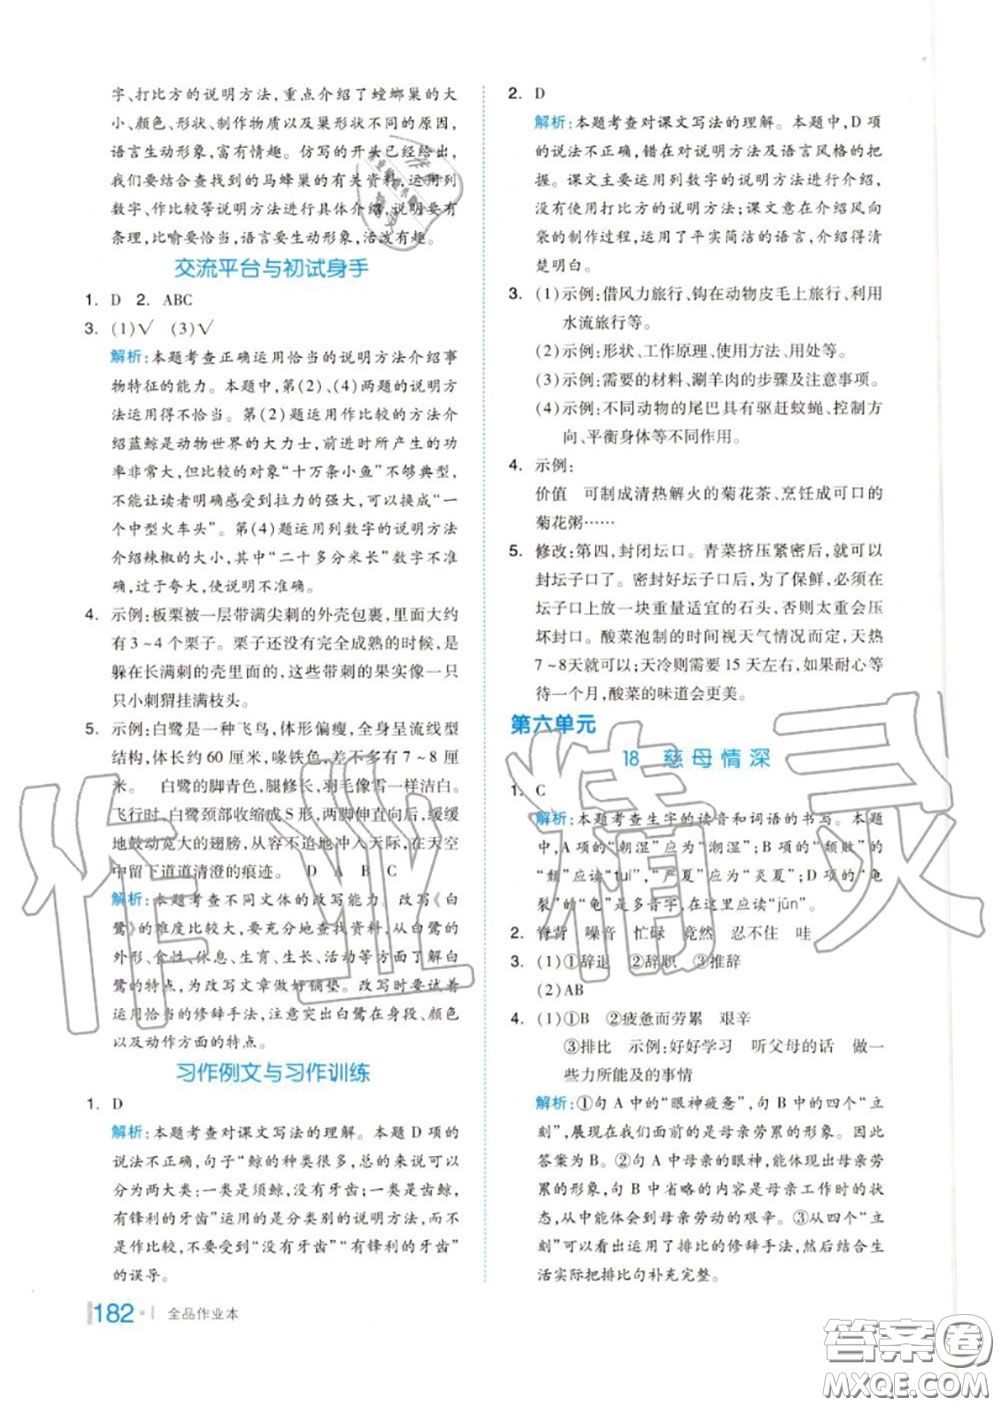 字、打比方的说明方法,重点介绍了螳螂巢的大
小、颜色、形状、制作物质以及巢形状不同的原因,
语言生动形象,富有情趣。仿写的开头已经给出,
我们要结合查找到的马蜂巢的有关资料,运用列
数字、作比较等说明方法进行具体介绍,说明要有
条理,比喻要恰当,语言要生动形象,活泼有趣。
交流平台与初试身手
1. D 2. ABC
3. (1)√ (3)√
解析:本题考查正确运用恰当的说明方法介绍事
物特征的能力。本题中,第(2)、(4)两题的说明方
法运用得不恰当。第(2)题运用作比较的方法介
绍蓝鲸是动物世界的大力士,前进时所产生的功
率非常大,但比较的对象“十万条小鱼”不够典型,
不能让读者明确感受到拉力的强大,可以说成“一
个中型火车头”。第(4)题运用列数字的说明方法
介绍辣椒的大小,其中“二十多分米长”数字不准
确,过于夸大,使说明不准确。
4. 示例:板栗被一层带满尖刺的外壳包裹,里面大约
有3~4个栗子。栗子还没有完全成熟的时候,是
躲在长满刺的壳里面的,这些带刺的果实像一只
只小刺猬挂满枝头。
5. 示例:白鹭是一种飞鸟,体形偏瘦,全身呈流线型
结构,体长约60厘米,喙铁色,差不多有7~8厘
米。 白鹭的脚青色,腿修长,羽毛像雪一样洁白。
飞行时,白鹭颈部收缩成S形,两脚向后伸,缓缓
地鼓动宽大的翅膀,从容不迫地冲入天际,在天空
中留下道道清澄的痕迹。 D A B C
解析:本题考查不同文体的改写能力。改写《白
鹭》的难度比较大,要充分地查找资料,从白鹭的
外形、食性、休息、生育、生长等方面了解白
鹭的特点,为改写文章做好铺垫。改写时要试着
运用恰当的修辞手法,注意突出白鹭在身段、颜色
以及动作方面的特点。
习作例文与习作训练
1. D
解析:本题考查对课文写法的理解。本题D项的
说法不正确,句子“鲸的种类很多,总的来说可以
分为两大类:一类是须鲸,没有牙齿;一类是齿鲸,
有锋利的牙齿”运用的是分类别的说明方法,不
是作比较,不要受到“没有牙齿”“有锋利的牙齿”
的误导。
182 全品作业本
2. D
解析:本题考查对课文写法的理解。本题中,D项
的说法不正确,错在对说明方法及语言风格的把
握。课文主要运用列数字的说明方法进行介绍,
没有使用打比方的方法;课文意在介绍风向
袋的制作过程,运用了平实简洁的语言,介绍得清
楚明白。
3. (1)示例:借风力旅行、钩在动物皮毛上旅行、利用
水流旅行等。
(2)示例:形状、工作原理、使用方法、用处等。
(3)示例:需要的材料、涮羊肉的步骤及注意事项。
(4)示例:不同动物的尾巴具有驱赶蚊蝇、控制方
向、平衡身体等不同作用。
4. 示例:
价值 可制成清热解火的菊花茶、烹饪成可口的
菊花粥……
5. 修改:第四,封闭坛口。青菜挤压紧密后,就可以
封坛子口了。密封好坛子口后,为了保鲜,必须在
坛子口上放一块重量适宜的石头,否则重会压
坏封口。酸菜泡制的时间视天气情况而定,天热
7~8天就可以;天冷则需要15天左右,如果耐心等
待一个月,酸菜的味道会更美。
第六单元
18 慈母情深
1. C
解析:本题考查生字的读音和词语的书写。本题
中,A项的“朝湿”应为“潮湿”;B项的“颓败”的
“颓”应读“tuí”,“严夏”应为“炎夏”;D项的“龟
裂”的“龟”是多音字,在这里应读“jūn”。
2. 脊背 噪音 忙碌 竟然 忍不住 哇
3. (1)①辞退 ②辞职 ③推辞
(2)AB
4. (1)①B ②疲惫而劳累 艰辛
③排比 示例:好好学习 听父母的话 做一
些力所能及的事情
解析:①句A中的“眼神疲惫”,句B中的四个“立
刻”,展现在我们面前的是母亲劳累的形象。因此
答案为B。②句A中母亲的眼神,能体现出母亲劳
累的形象,句B中省略的内容是母亲工作时的状
态,从中能体会到母亲劳动的艰辛。③从四个“立
刻”可以看出运用了排比的修辞手法,然后结合生
活实际把排比句补充完整。
作业精灵
答案圈
MXQE.COM